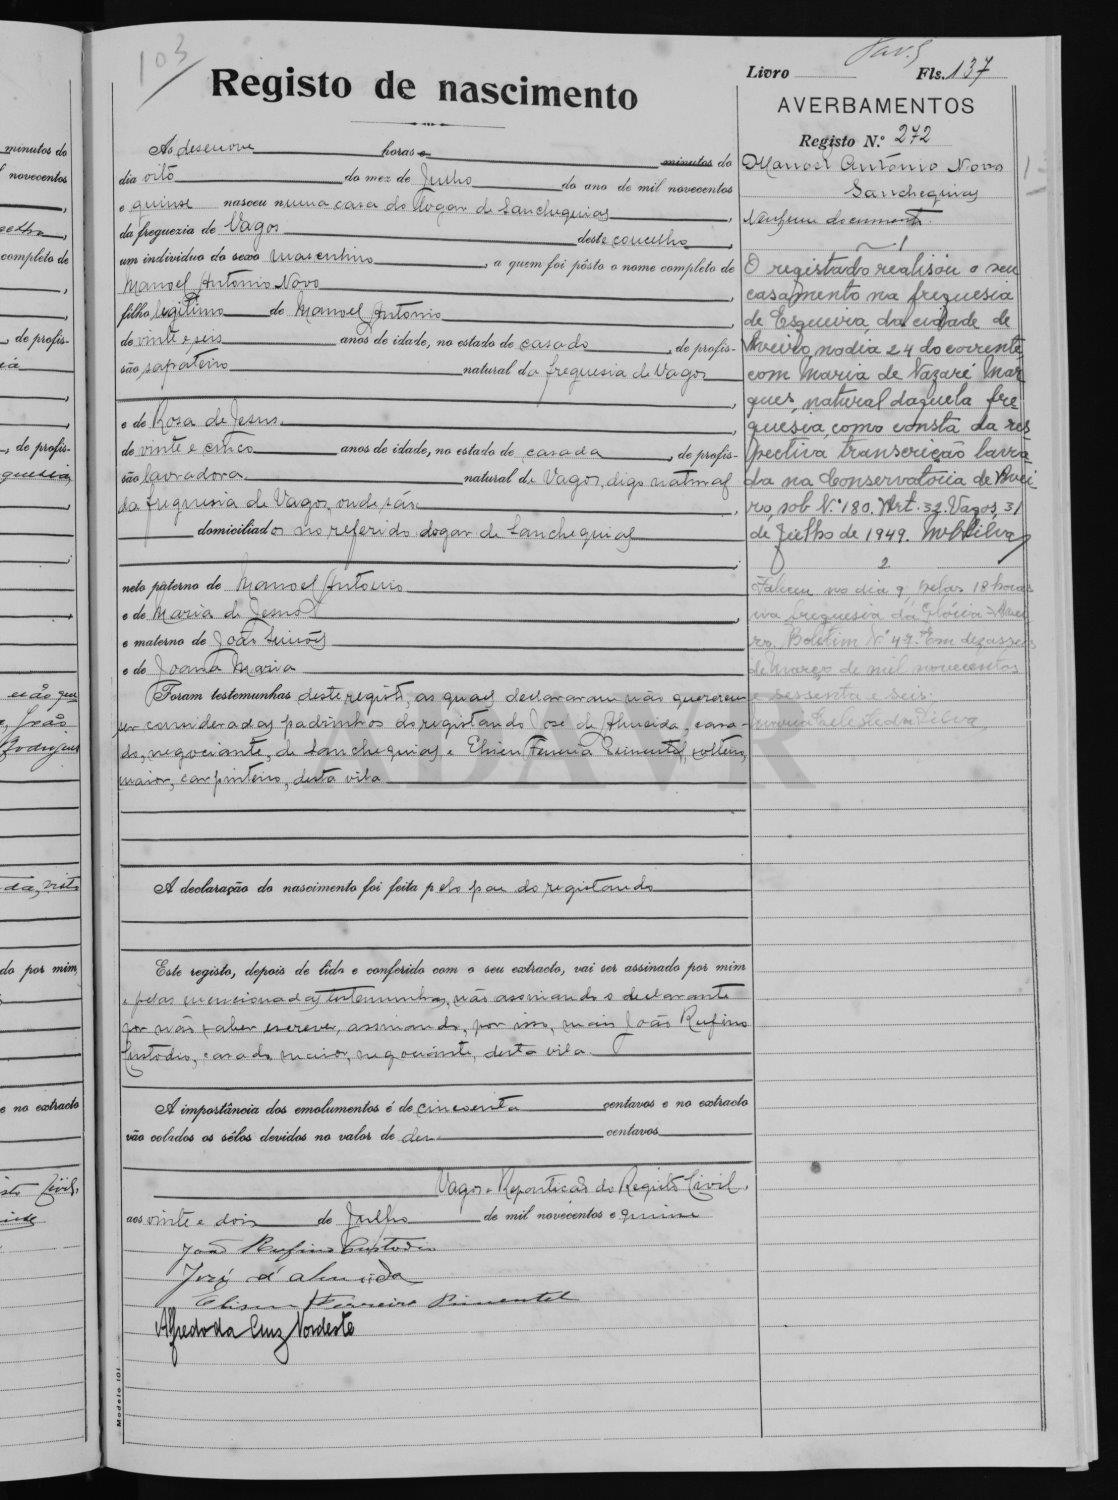 103
Registo de nascimento
As desenove horas e minutos do
dia oito do mez de Julho do ano de mil novecentos
e quinse nasceu numa casa do logar de Sanchequias,
da freguezia de Vagos deste concelho,
um individuo do sexo masculino, a quem foi pôsto o nome completo de
Manoel Antonio Novo,
filho legitimo de Manoel Antonio,
de vinte e seis anos de idade, no estado de casado, de profis-
são sapateiro natural da freguesia de Vagos
,
e de Rosa de Jesus,
de vinte e cinco anos de idade, no estado de casada, de profis-
são lavradora natural de Vagos, digo natural
da freguesia de Vagos, onde são,
domiciliados no referido logar de Sanchequias
;
neto paterno de Manoel Antonio
e de Maria de Jesus,
e materno de João Simões
e de Joana Maria
Foram testemunhas deste registo, as quaes declararam não quererem
ser consideradas padrinhos do registando José de Almeida, casa-
do, negociante, de Sanchequias e Eliseu Ferreira Pimentel, solteiro,
maior, carpinteiro, desta vila
A declaração do nascimento foi feita pelo pae do registando
Este registo, depois de lido e conferido com o seu extracto, vai ser assinado por mim
e pelas mencionadas testemunhas, não assinando o declarante
por não saber escrever, assinando, por isso, mais João Rufino
Custodio, casado maior, negociante, desta vila.
A importância dos emolumentos é de cincoenta centavos e no extracto
vão colados os sêlos devidos no valor de dez centavos
Vagos e Repartição do Registo Civil,
aos vinte e dois de Julho de mil novecentos e quinse
João Rufino Custodio
José d'Almeida
Eliseu Ferreira Pimentel
Alfredo da Cruz Nordeste
Modelo 101
Livro Fls. 137
AVERBAMENTOS
Registo N.º 272
Manoel António Novo
Sanchequias
Nenhum documento
1
O registado realisou o seu
casamento na freguesia
de Esgueira, da cidade de
Aveiro, no dia 24 do corrente,
com Maria de Nazaré Mar
ques, natural daquela fre-
guesia, como consta da res-
pectiva transcrição lavra-
da na Conservatoria de Avei
ro, sob N.º 180. Art. 32. Vagos, 31
de Julho de 1949.
2
Faleceu no dia 9, pelas 18 horas
na freguesia da Glória - Avei
ro. Boletim N.º 49. Em dezasseis
de Março de mil novecentos
e sessenta e seis.
minutos do
novecentos
completo de
, de profis-
, de profis-
do por mim
e no extracto
ADAVR